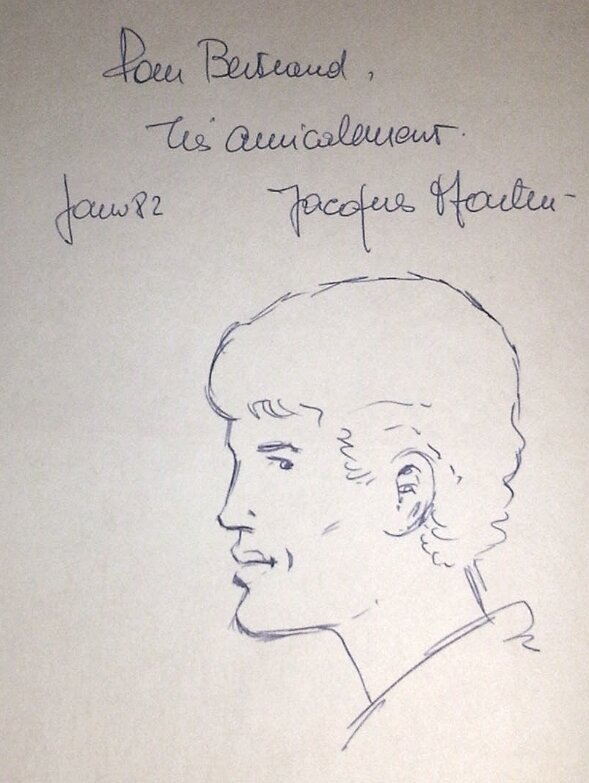 Pour Bertrand,
Très amicalement.
Janv 82 Jacques Martin